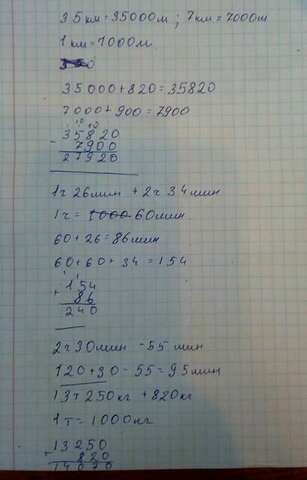 35км=35000м ; 7км=7000м
1км=1000м
35000+820=35820
7000+900=7900
35820
- 7900
27920
1ч 26мин + 2ч 34мин
1ч= 60мин
60+26=86мин
60+60+34=154
154
+ 86
240
2ч30мин -55 мин
120+30-55=95мин
13т 250кг + 820кг
1т=1000кг
13250
+ 820
14070